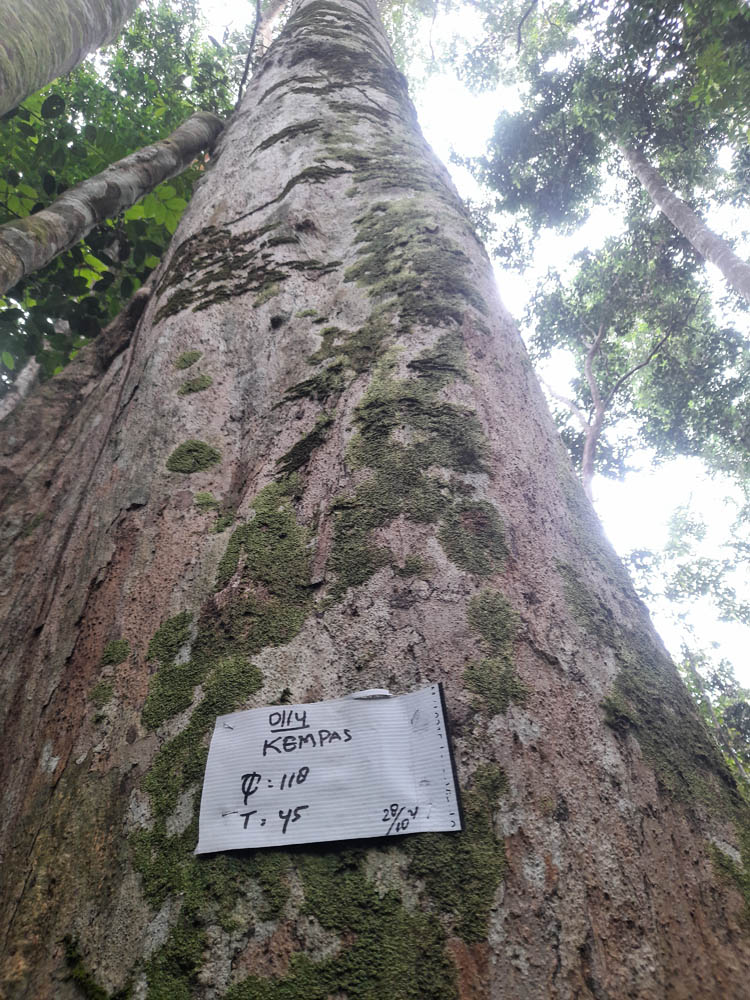 0114
KEMPAS
₵ = 118
T = 45
28/10